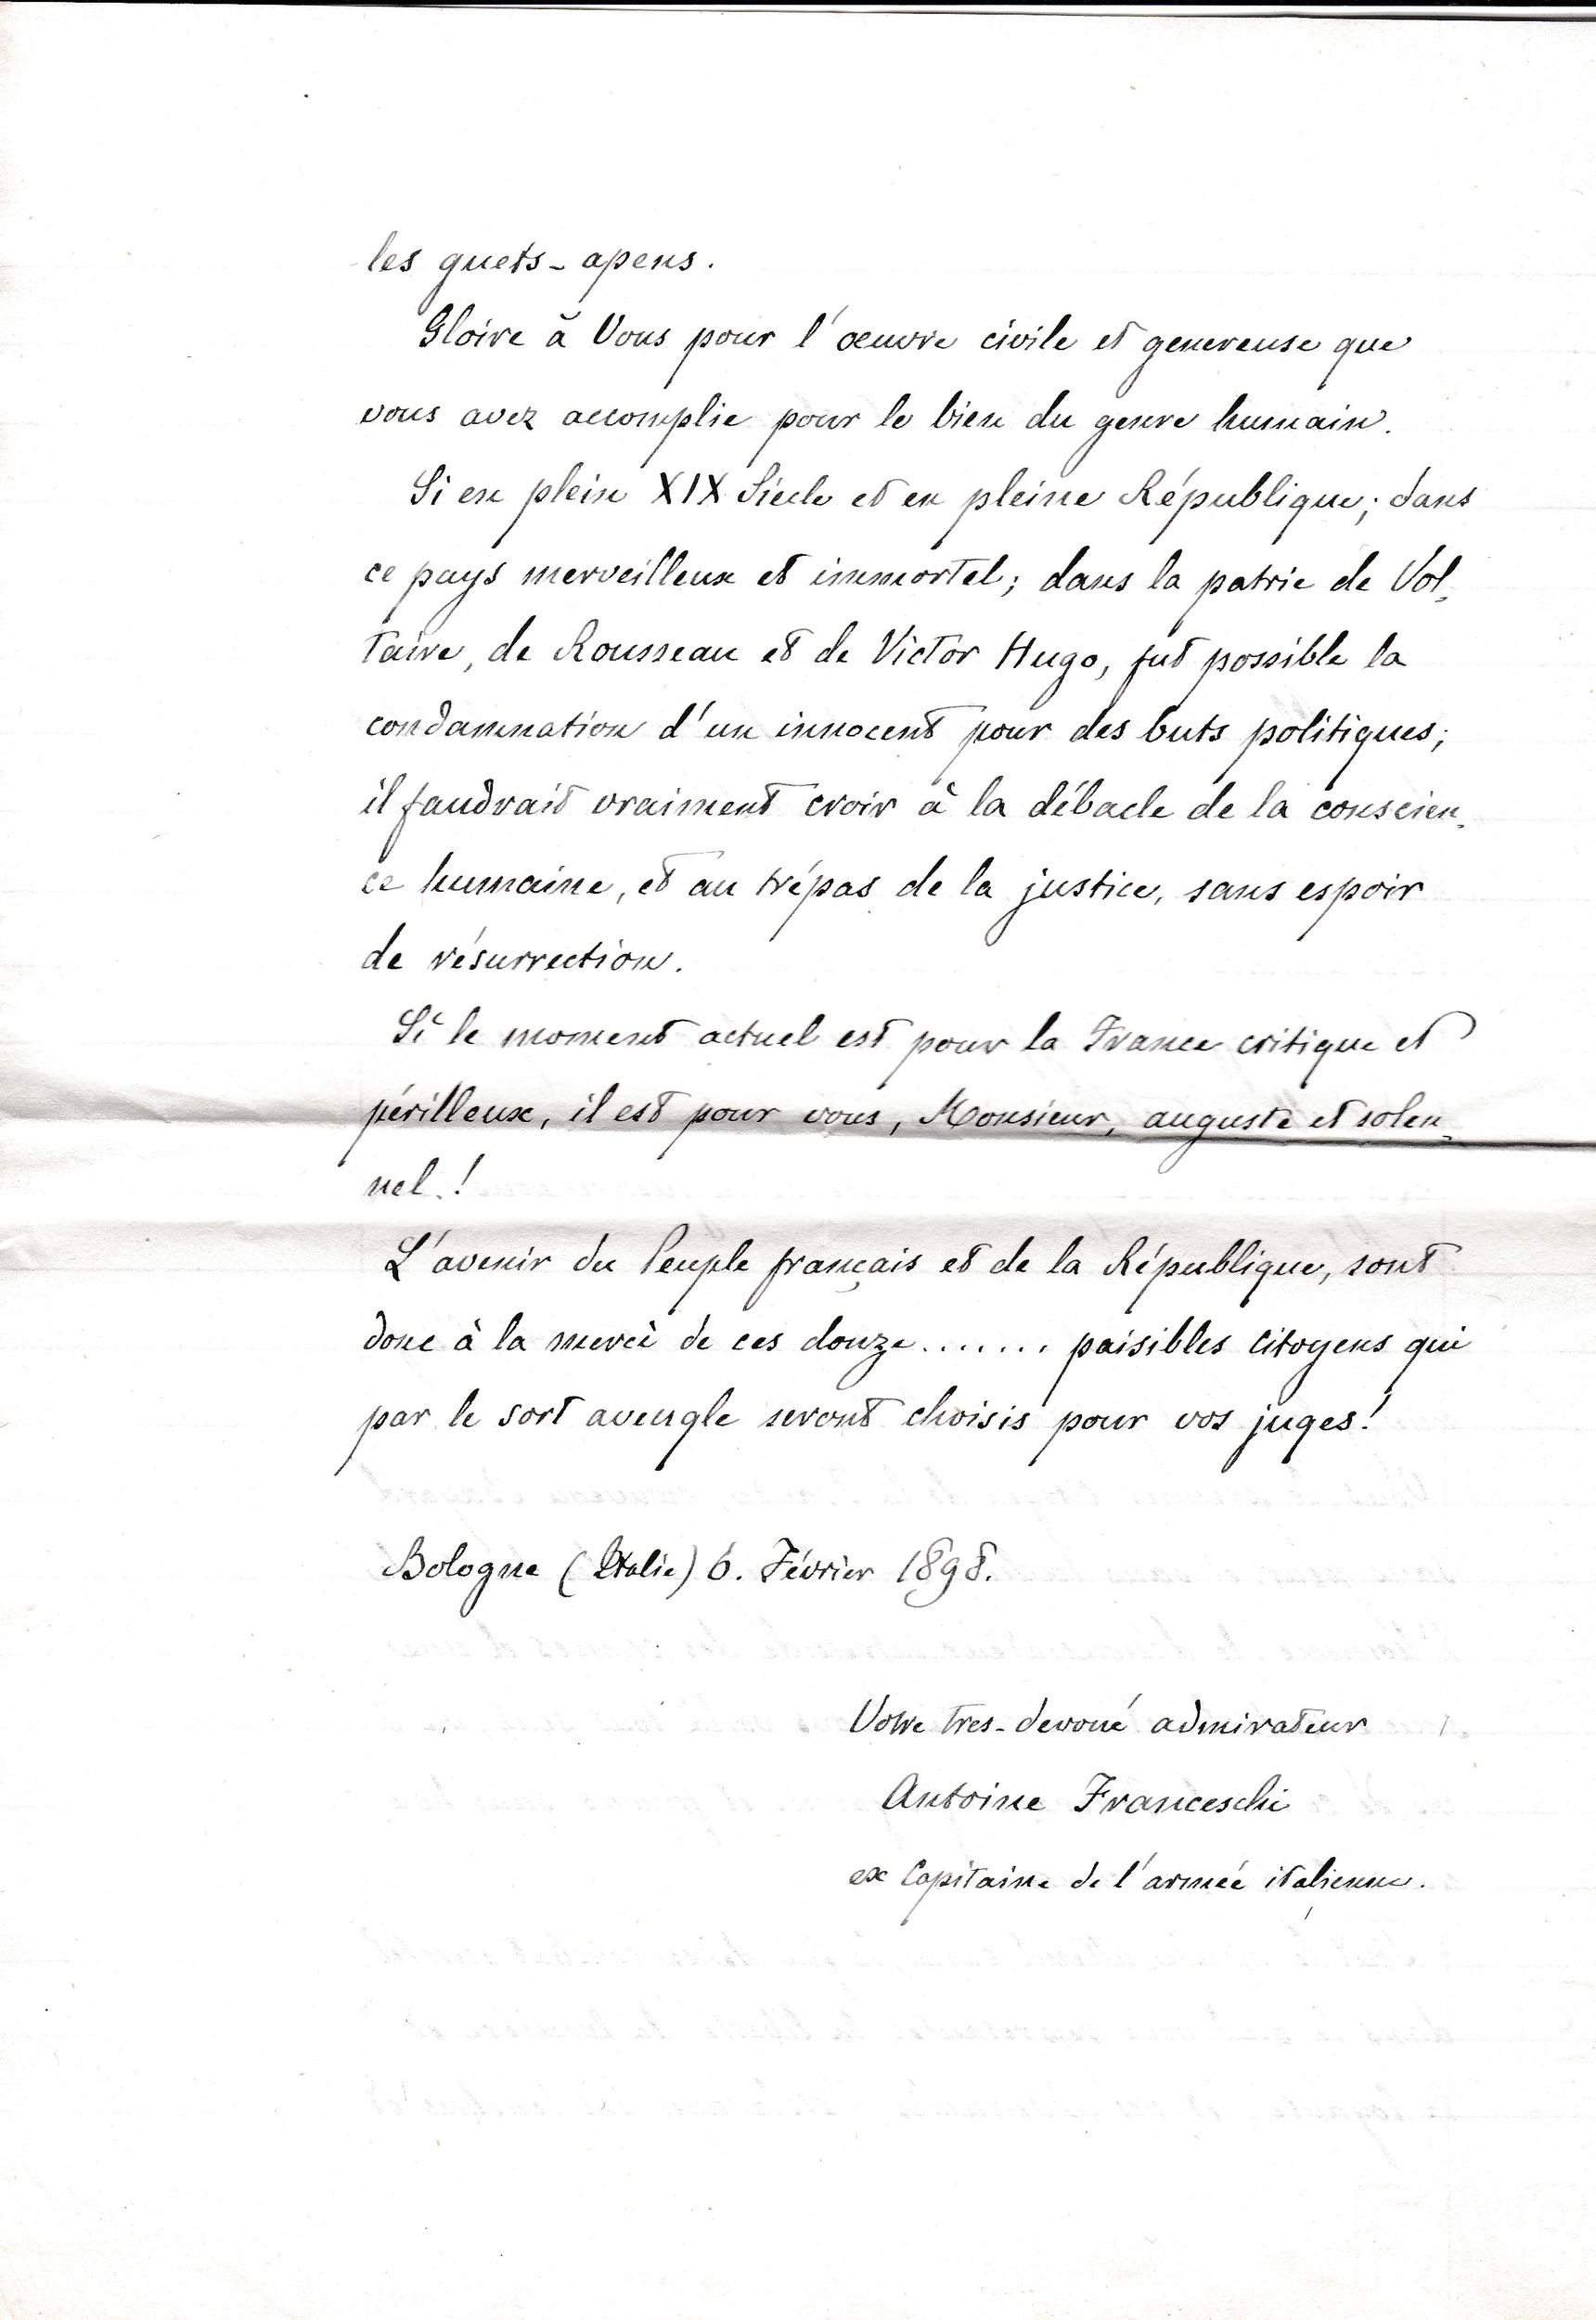 les guets-apens.
Gloire à Vous pour l'œuvre civile et genereuse que
vous avez accomplie pour le bien du genre humain.
Si en plein XIX Siécle et en pleine République; dans
ce pays merveilleux et immortel; dans la patrie de Vol-
taire, de Rousseau et de Victor Hugo, fut possible la
condamnation d'un innocent pour des buts politiques;
il faudrait vraiment croir à la débacle de la conscien-
ce humaine, et au trépas de la justice, sans espoir
de résurrection.
Si le moment actuel est pour la France critique et
périlleux, il est pour vous, Monsieur, auguste et solen-
nel.!
L'avenir du Peuple français et de la République, sont
donc à la mercè de ces douze....... paisibles citoyens qui
par le sort aveugle seront choisis pour vos juges!
Bologne (Italie) 6. Février 1898.
Votre tres-devoué admirateur
Antoine Franceschi
ex Capitaine de l'armée italienne.